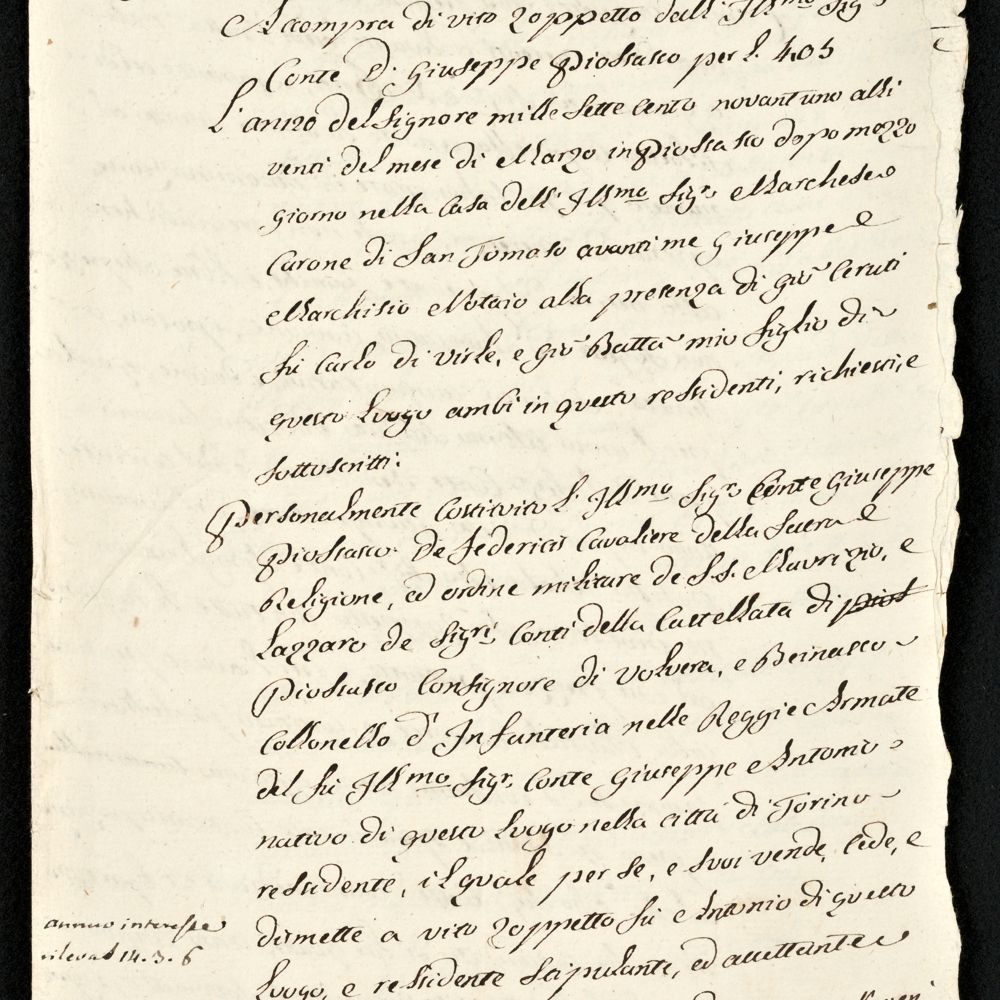 Accompra di vito Zoppetto dall' Ill.mo Sig.r
Conte D. Giuseppe Piossasco per L. 405
L'anno del Signore mille sette cento novant uno alli
venti del mese di Marzo in Piossasco dopo mezzo
giorno nella casa dell' Ill.mo Sig.r Marchese
Carone di San Tomaso avanti me Giuseppe
Marchisio Notaio alla presenza di Gio Ceruti
fu Carlo di virle, e Gio Batta mio figlio di
questo luogo ambi in questo ressidenti, richiesti, e
sottoscritti:
Personalmente costituito l' Ill.mo Sig.r Conte Giuseppe
Piossasco De federicis Cavaliere della Sacra
Religione, ed ordine militare de S.S. Maurizio, e
Lazzaro de Sig.ri Conti della Castellata di pios
Piossasco Consignore di Volvera, e Beinasco
Collonello d' Infanteria nelle Reggie Armate
del fu Ill.mo Sig.r Conte Giuseppe Antonio
nativo di questo luogo nella città di Torino
ressidente, il quale per se, e suoi vende, cede, e
dimette a vito Zoppetto fu Antonio di questo
annuo interesse
rileva L 14.3.6
luogo, e ressidente stipulante, ed accettante